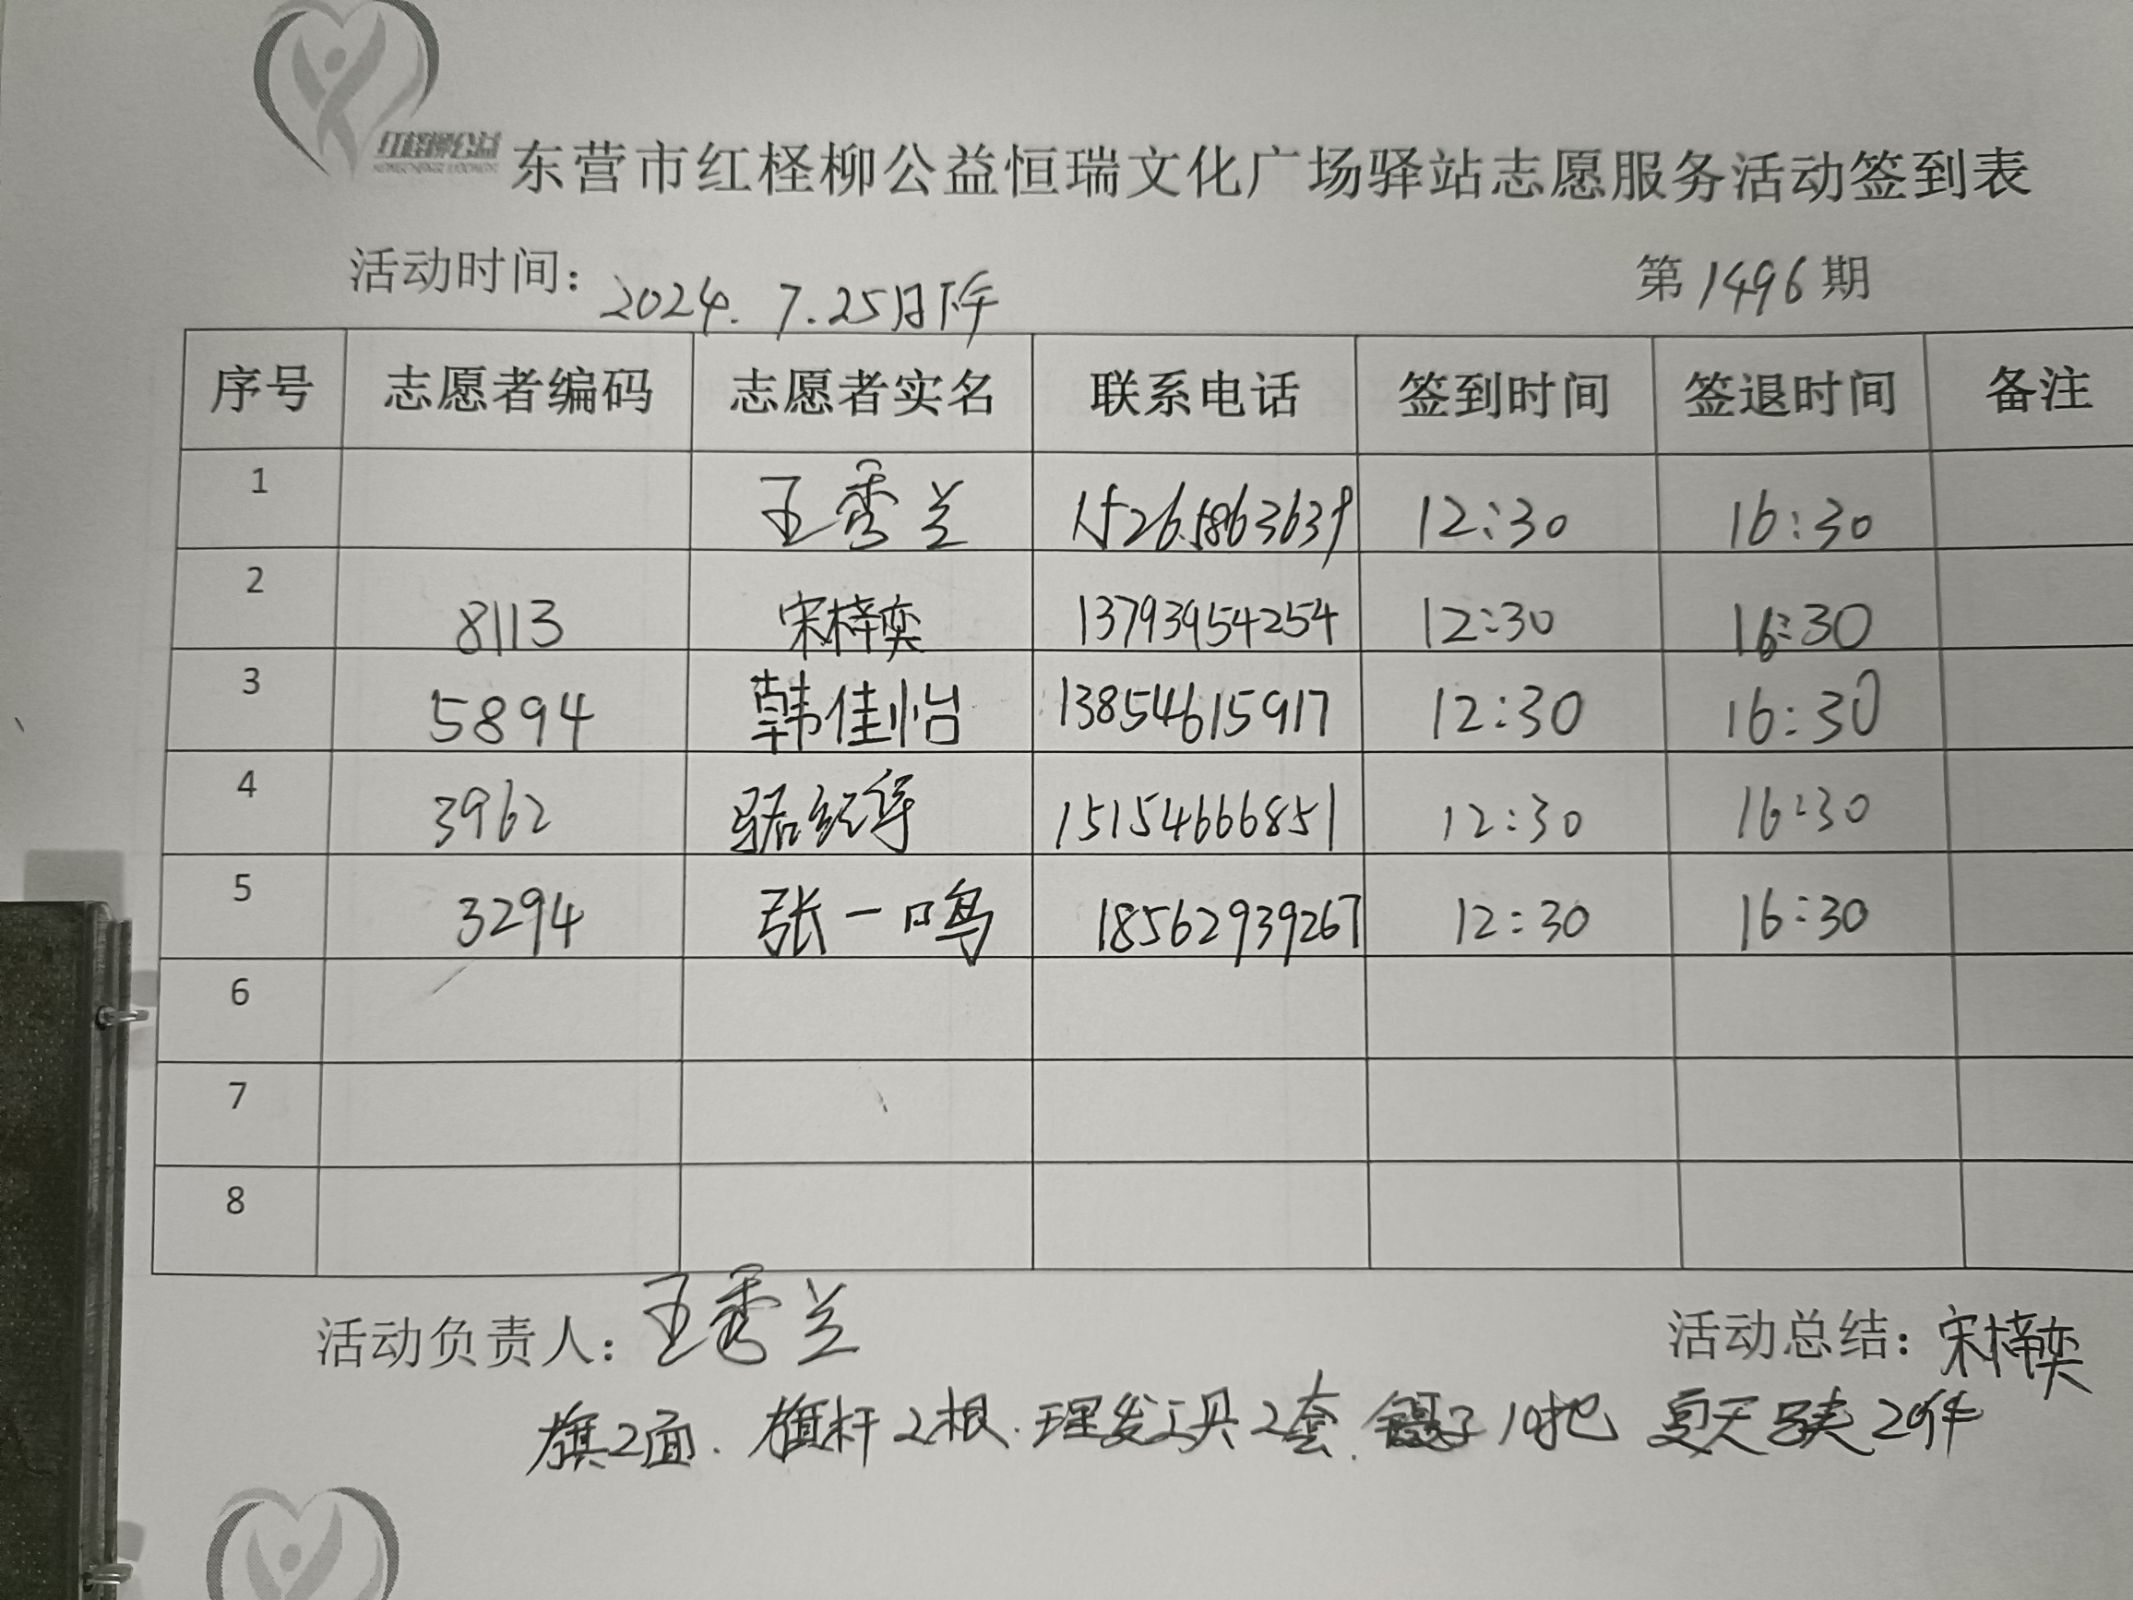 红柽柳公益
东营市红柽柳公益恒瑞文化广场驿站志愿服务活动签到表
活动时间：2024.7.25日下午 第1496期
序号 志愿者编码 志愿者实名 联系电话 签到时间 签退时间 备注
1 王秀兰 15265863639 12:30 16:30
2 8113 宋梓奕 13793954254 12:30 16:30
3 5894 韩佳怡 13854615917 12:30 16:30
4 3962 15154666851 12:30 16:30
5 3294 张一鸣 18562939267 12:30 16:30
6
7
8
活动负责人：王秀兰 活动总结：宋梓奕
旗2面. 旗杆2根. 理发工具2套. 镊子10把 夏天马夹20件